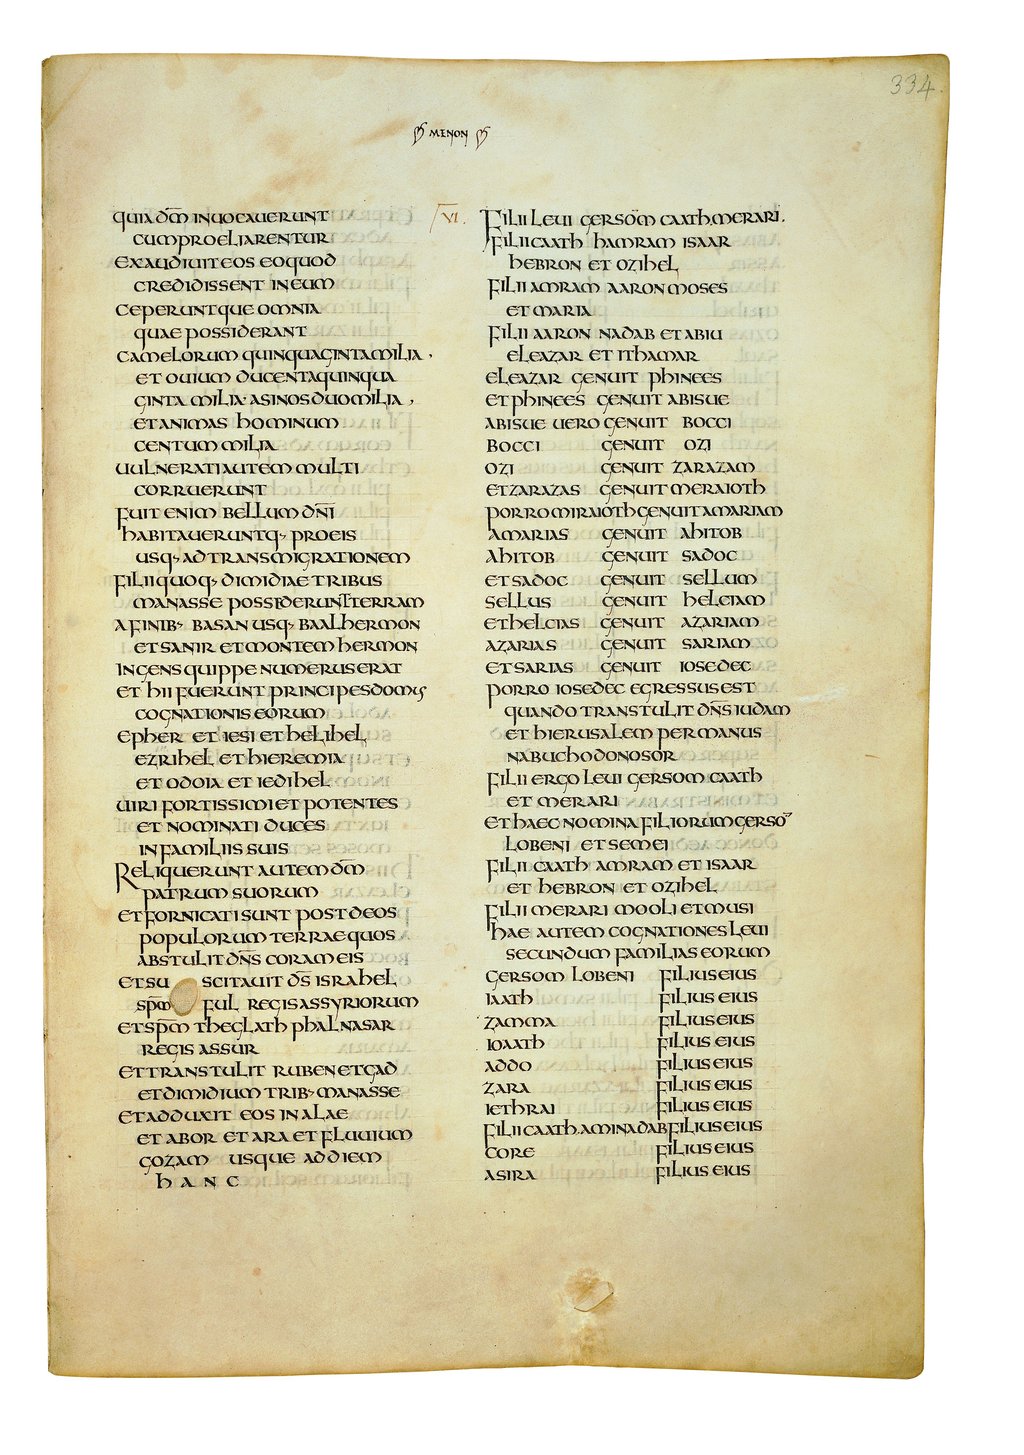 334
MENON
quia dm̄ inuocauerunt
cum proeliarentur
exaudiuit eos eo quod
credidissent in eum
ceperuntque omnia
quae possiderant
camelorum quinquaginta milia
et ouium ducenta quinqua
ginta milia · asinos duo milia
et animas hominum
centum milia
uulnerati autem multi
corruerunt
fuit enim bellum dn̄i
habitaueruntq· pro eis
usq· ad transmigrationem
filii quoq· dimidiae tribus
manasse possiderunt terram
a finib· basan usq· baalhermon
et sanir et montem hermon
ingens quippe numerus erat
et hii fuerunt principes domus
cognationis eorum
epher et iesi et helihel
ezrihel et hieremia
et odoia et iedihel
uiri fortissimi et potentes
et nominati duces
in familiis suis
Reliquerunt autem dm̄
patrum suorum
et fornicati sunt post deos
populorum terrae quos
abstulit dn̄s coram eis
et su scitauit ds̄ israhel
spm̄ ful regis assyriorum
et spm̄ theglath phalnasar
regis assur
et transtulit ruben et gad
et dimidium trib· manasse
et adduxit eos in alae
et abor et ara et fluuium
gozam usque ad diem
hanc
VI.
Filii leui gersom caath. merari.
filii caath hamram isaar
hebron et ozihel
filii amram aaron moses
et maria
filii aaron nadab et abiu
eleazar et ithamar
eleazar genuit phinees
et phinees genuit abisue
abisue uero genuit bocci
bocci genuit ozi
ozi genuit zarazam
et zarazas genuit meraioth
porro miraioth genuit amariam
amarias genuit ahitob
ahitob genuit sadoc
et sadoc genuit sellum
sellus genuit helciam
et helcias genuit azariam
azarias genuit sariam
et sarias genuit iosedec
porro iosedec egressus est
quando transtulit dn̄s iudam
et hierusalem per manus
nabuchodonosor
filii ergo leui gersom caath
et merari
et haec nomina filiorum gersō
lobeni et semei
filii caath amram et isaar
et hebron et ozihel
filii merari mooli et musi
hae autem cognationes leui
secundum familias eorum
gersom lobeni filius eius
iaath filius eius
zamma filius eius
ioaath filius eius
addo filius eius
zara filius eius
iethrai filius eius
filii caath. aminadab filius eius
core filius eius
asira filius eius